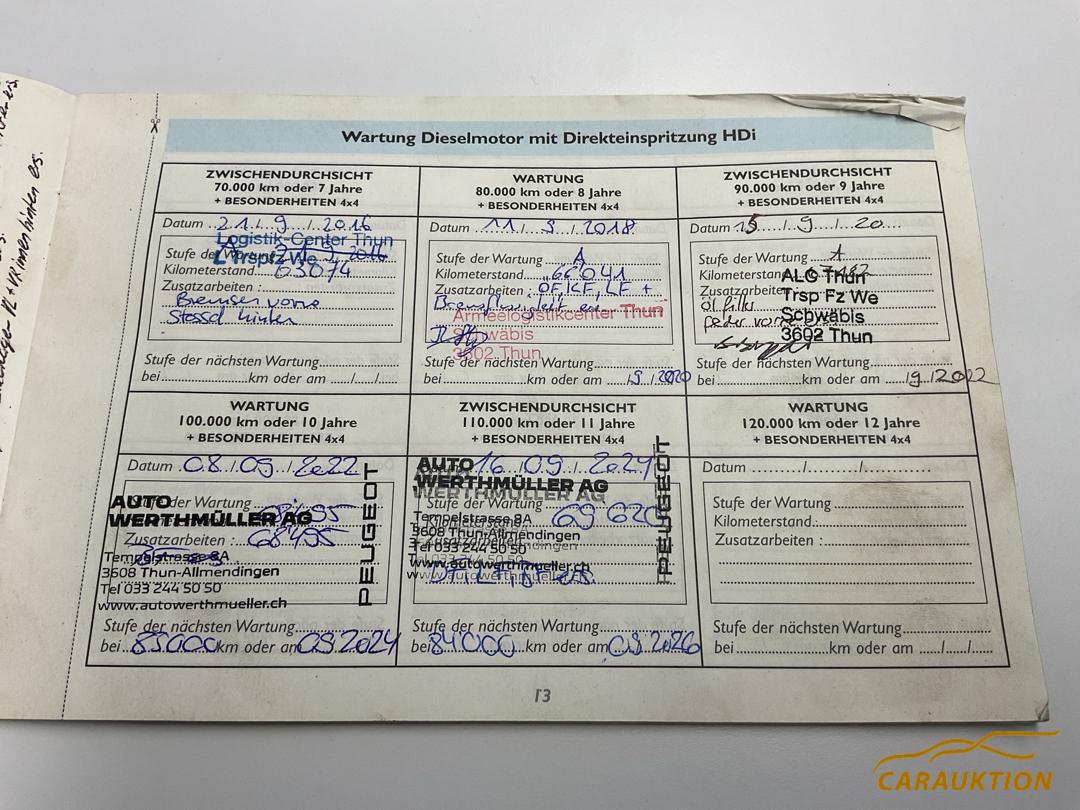 Wartung Dieselmotor mit Direkteinspritzung HDi
ZWISCHENDURCHSICHT
70.000 km oder 7 Jahre
+ BESONDERHEITEN 4x4
Datum 21 / 9 / 2016
Logistik-Center Thun
Stufe der Wartung
Trsp Fz We
Kilometerstand 63074
Zusatzarbeiten :
Bremsen vorne
Stossd hinten
Stufe der nächsten Wartung
bei km oder am / /
WARTUNG
80.000 km oder 8 Jahre
+ BESONDERHEITEN 4x4
Datum 11 / 9 / 2018
Stufe der Wartung A
Kilometerstand 66041
Zusatzarbeiten : OF, KF, LF +
Armeelogistikcenter Thun
Schwäbis
3602 Thun
Stufe der nächsten Wartung
bei km oder am / 9 / 2020
ZWISCHENDURCHSICHT
90.000 km oder 9 Jahre
+ BESONDERHEITEN 4x4
Datum 15 / 9 / 20
Stufe der Wartung A
Kilometerstand
ALC Thun
Zusatzarbeiten
Trsp Fz We
Schwäbis
3602 Thun
Stufe der nächsten Wartung
bei km oder am / 9 / 2022
WARTUNG
100.000 km oder 10 Jahre
+ BESONDERHEITEN 4x4
Datum 08 / 09 / 2022
AUTO
Stufe der Wartung
WERTHMÜLLER AG
PEUGEOT
Zusatzarbeiten : 68495
Tempelstrasse 8A
3608 Thun-Allmendingen
Tel 033 244 50 50
www.autowerthmueller.ch
Stufe der nächsten Wartung
bei 83000 km oder am 09.2024
ZWISCHENDURCHSICHT
110.000 km oder 11 Jahre
+ BESONDERHEITEN 4x4
AUTO 16 / 09 / 2024
WERTHMÜLLER AG
PEUGEOT
Stufe der Wartung
69620
Tempelstrasse 8A
3608 Thun-Allmendingen
Tel 033 244 50 50
www.autowerthmueller.ch
Stufe der nächsten Wartung
bei 84000 km oder am 09.2026
WARTUNG
120.000 km oder 12 Jahre
+ BESONDERHEITEN 4x4
Datum / /
Stufe der Wartung
Kilometerstand :
Zusatzarbeiten :
Stufe der nächsten Wartung
bei km oder am / /
13
CARAUKTION